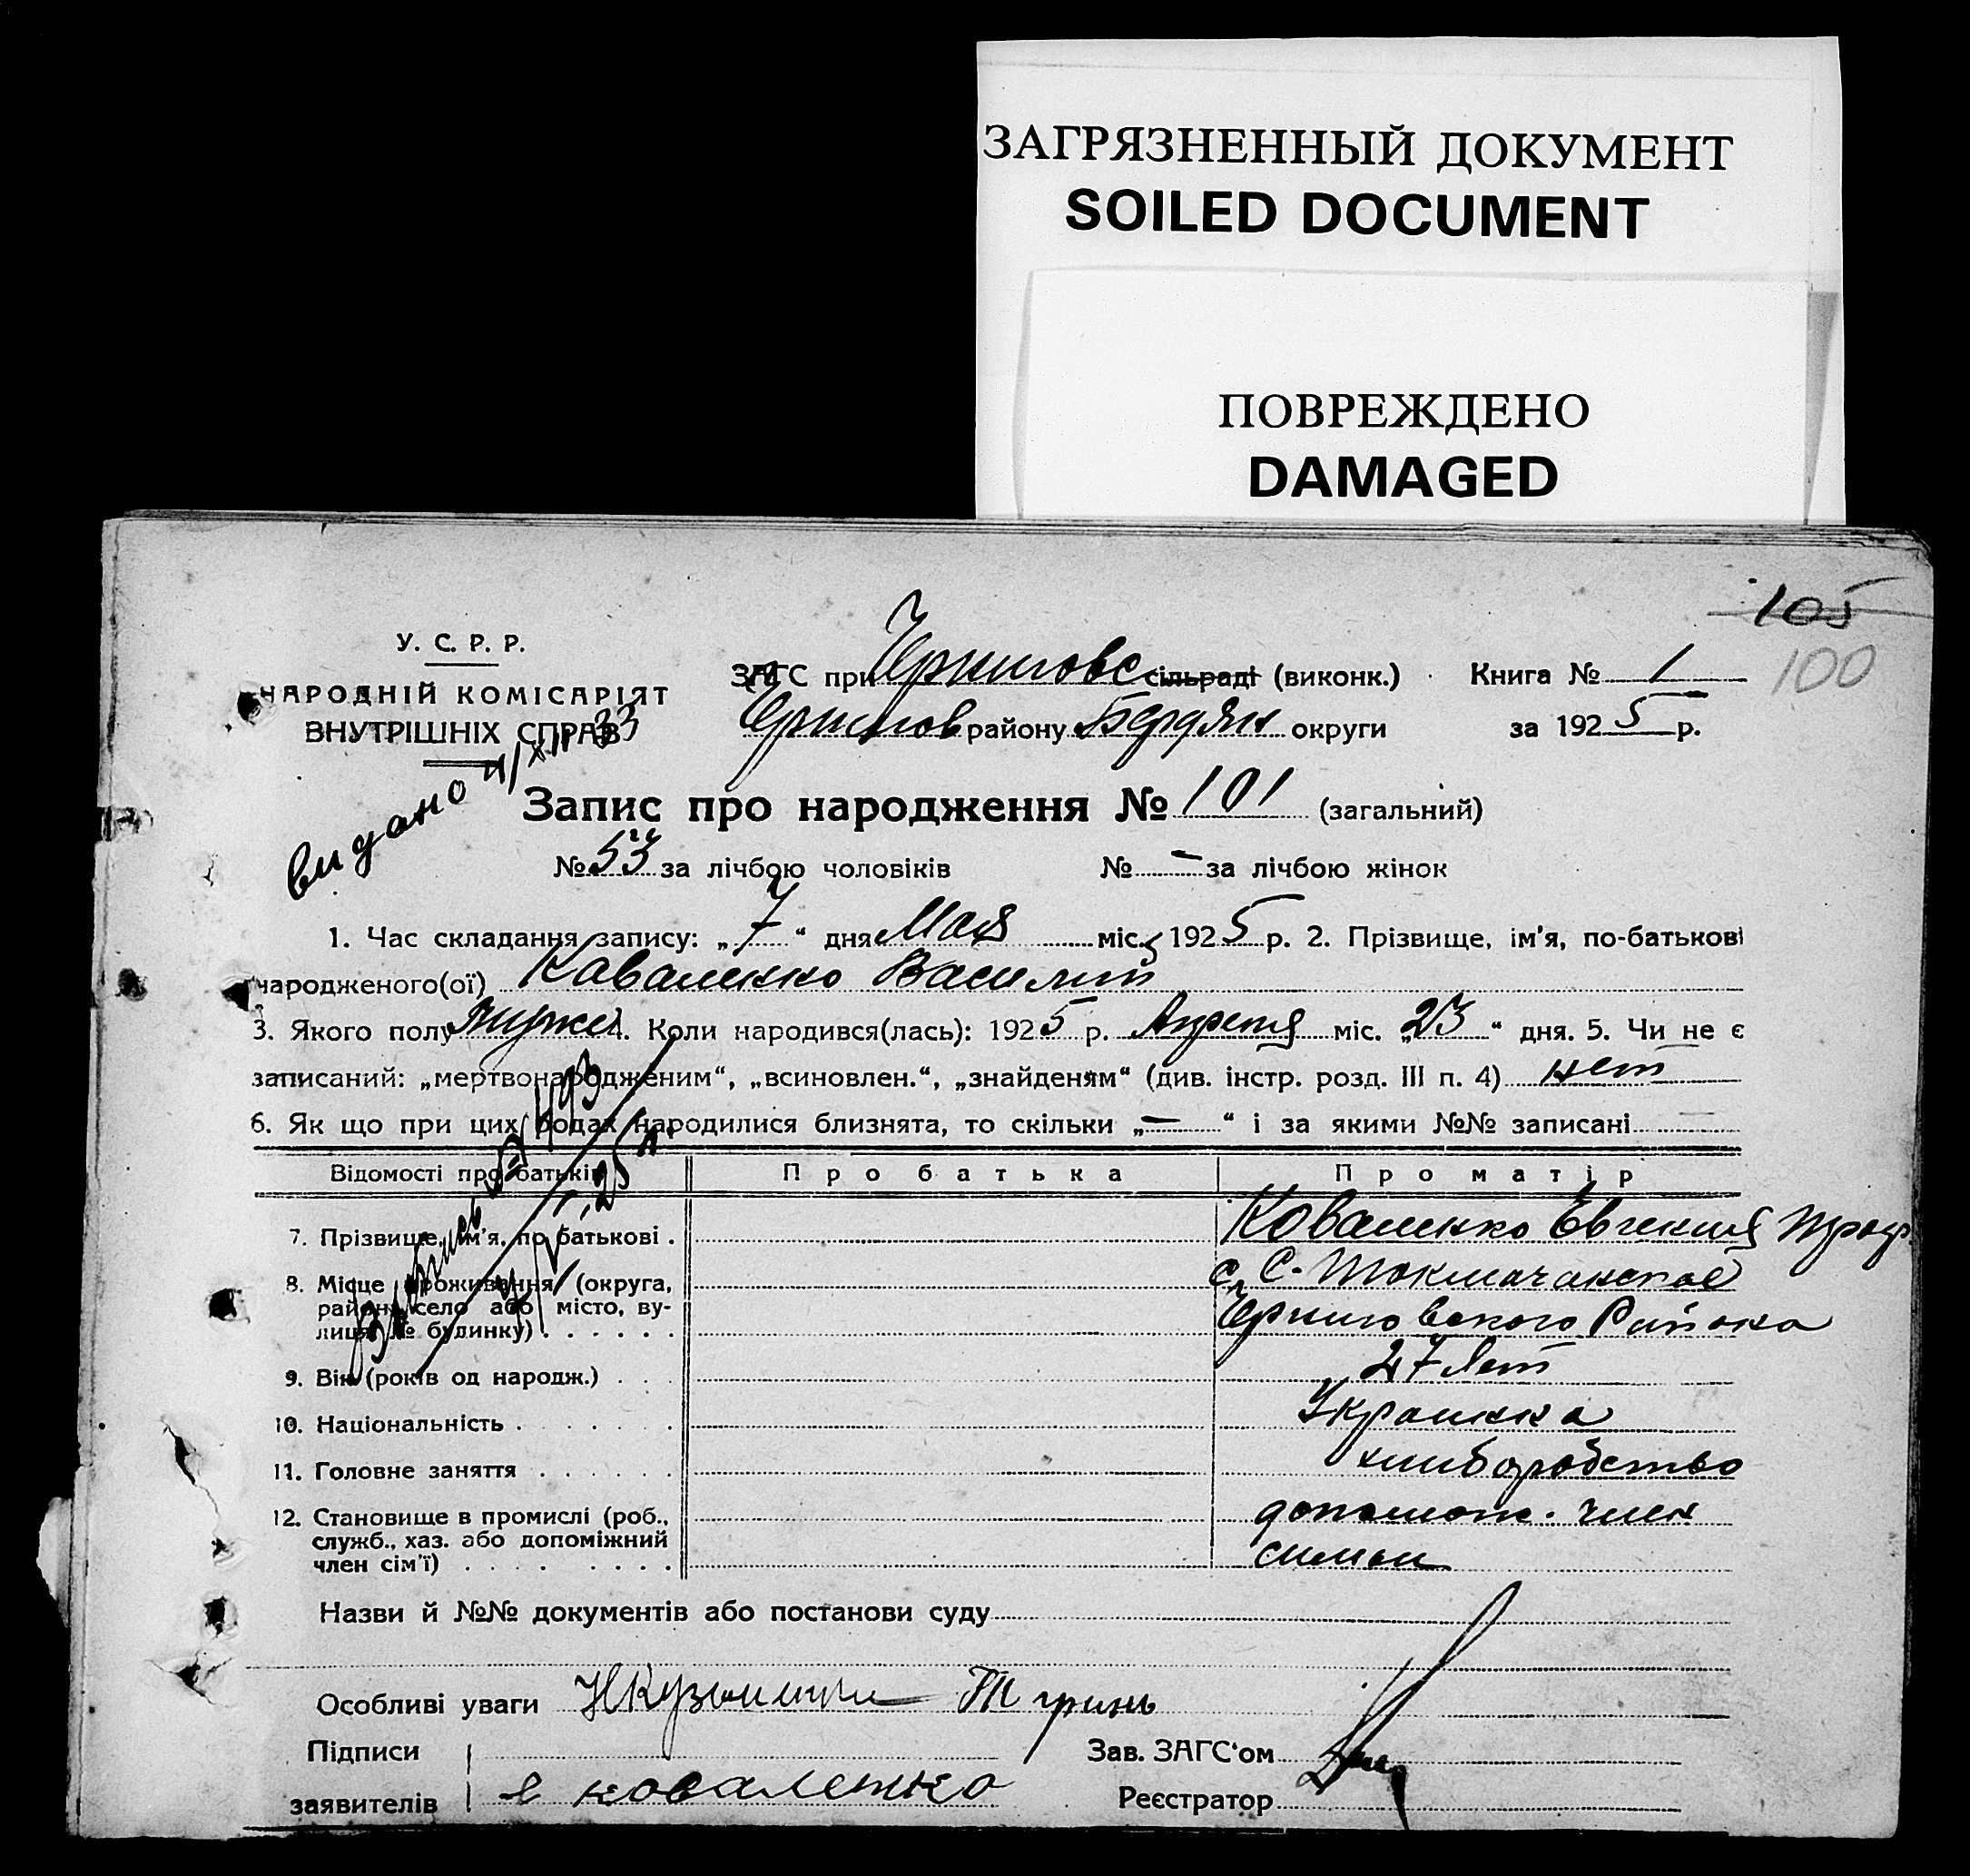 ЗАГРЯЗНЕННЫЙ ДОКУМЕНТ
SOILED DOCUMENT
ПОВРЕЖДЕНО
DAMAGED
105
100
У. С. Р. Р.
НАРОДНІЙ КОМІСАРІЯТ
ВНУТРІШНІХ СПРАВ
видано 4/XII 33
ЗАГС при Черниговс сільраді (виконк.) Книга № 1
Чернигов району Бердян округи за 1925 р.
Запис про народження № 101 (загальний)
№ 53 за лічбою чоловіків № — за лічбою жінок
1. Час складання запису: „7“ дня Мая міс. 1925 р. 2. Прізвище, ім'я, по-батькові
народженого(ої) Коваленко Василий
3. Якого полу Мужс 4. Коли народився(лась): 1925 р. Апреля міс. „23“ дня. 5. Чи не є
записаний: „мертвонародженим“, „всиновлен.“, „знайденям“ (див. інстр. розд. III п. 4) нет
6. Як що при цих родах народилися близнята, то скільки „—“ і за якими №№ записані
Відомості про батьків Про батька Про матір
7. Прізвище, ім'я, по батькові . Коваленко Евгения
8. Місце проживання (округа, с. С-Токмачанское
район, село або місто, ву- Черниговского Района
лиця, № будинку) . . . . . .
9. Вік (років од народж.) . . . 27 лет
10. Національність . . . . . Украинка
11. Головне заняття . . . . . хлиборобство
12. Становище в промислі (роб., допомож. член
служб., хаз. або допоміжний
член сім'ї) . . . . . . . . симьи
Назви й №№ документів або постанови суду
Особливі уваги
Підписи Зав. ЗАГС'ом
заявителів е коваленко Реєстратор